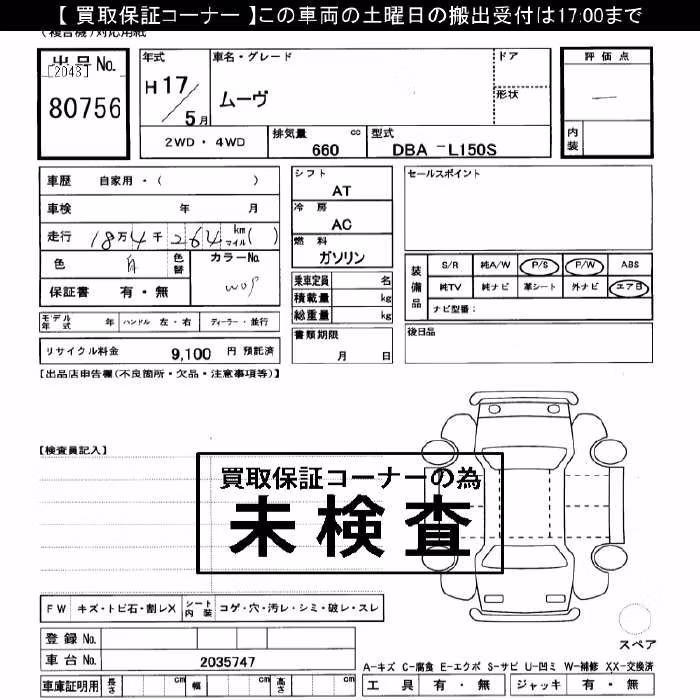 【 買取保証コーナー 】この車両の土曜日の搬出受付は17:00まで
(複合機)対応用紙
出品No. 年式 車名・グレード ドア 評価点
[2043]
H 17 ムーヴ 形状 —
80756 5月
内装
2WD・4WD 排気量 cc 660 型式 DBA -L150S
車歴 自家用・( ) シフト AT セールスポイント
車検 年 月 冷房 AC
走行 18万4千264 km マイル( ) 燃料 ガソリン
色 白 色替 カラーNo. W09
保証書 有・無
乗車定員 名
積載量 kg
総重量 kg
装備品 S/R 純A/W P/S P/W ABS
純TV 純ナビ 革シート 外ナビ エア日
ナビ型番:
モデル年式 年 ハンドル 左・右 ディーラー・並行
書類期限 月 日
後日品
リサイクル料金 9,100 円 預託済
【出品店申告欄(不良箇所・欠品・注意事項等)】
【検査員記入】
買取保証コーナーの為
未検査
FW キズ・トビ石・割レX シート内装 コゲ・穴・汚レ・シミ・破レ・スレ
登録 No.
車台 No. 2035747
スペア
A-キズ C-腐食 E-エクボ S-サビ U-凹ミ W-補修 XX-交換済
車庫証明用 長さ cm 幅 cm 高さ cm 工具 有・無 ジャッキ 有・無